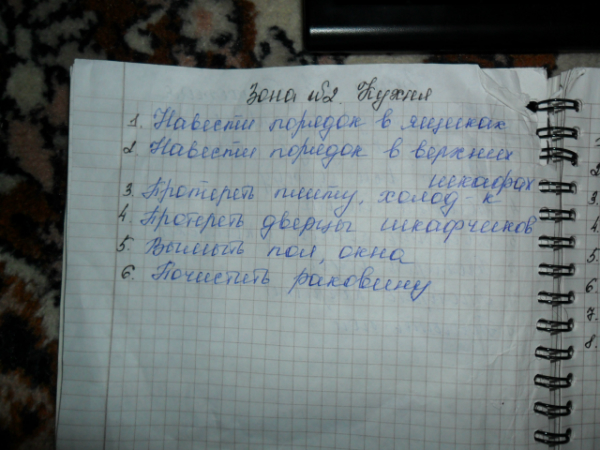 Зона №2. Кухня
1. Навести порядок в ящиках
2. Навести порядок в верхних
шкафах
3. Протереть плиту, холод-к
4. Протереть дверцы шкафчиков
5. Вымыть пол, окна
6. Почистить раковину
1.
2
3.
4.
5.
6.
7.
8.